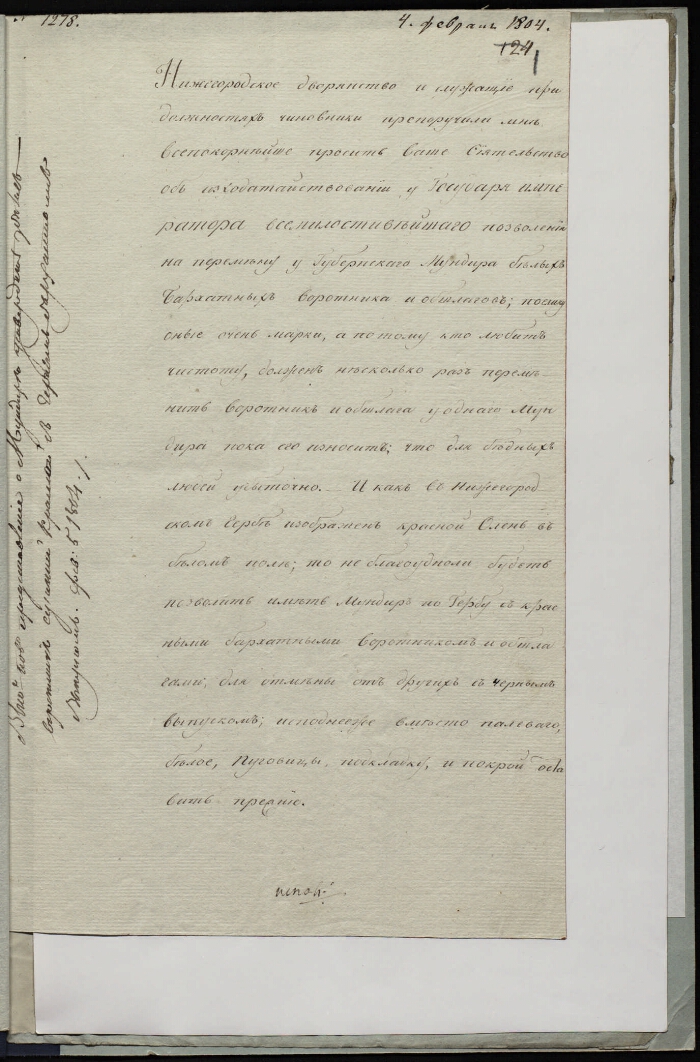 1278.
4. февраля 1804.
124
Нижегородское дворянство и служащіе при
должностяхъ чиновники препоручили мнѣ
всепокорнѣйше просить Ваше Сіятельство
объ исходатайствованіи у Государя импе
ратора всемилостивѣйшаго позволенія
на перемѣну у Губернскаго Мундира бѣлыхъ
бархатныхъ воротника и обшлаговъ; поелику
оные очень марки, а потому кто любитъ
чистоту, долженъ нѣсколько разъ перемѣ-
нить воротникъ и обшлага у однаго Мун
дира пока его износитъ; что для бѣдныхъ
людей убыточно. — И какъ въ Нижегород
скомъ Гербѣ изображенъ красной Олень въ
бѣломъ полѣ; то не благоугодноли будетъ
позволить имѣть Мундиръ по Гербу съ крас
ными бархатными воротникомъ и обшла
гами, для отмѣны отъ другихъ съ чернымъ
выпускомъ; исподнее же вмѣсто палеваго,
бѣлое, Пуговицы, подкладку, и покрой оста
вить прежніе.
представленіе о Мундирѣ